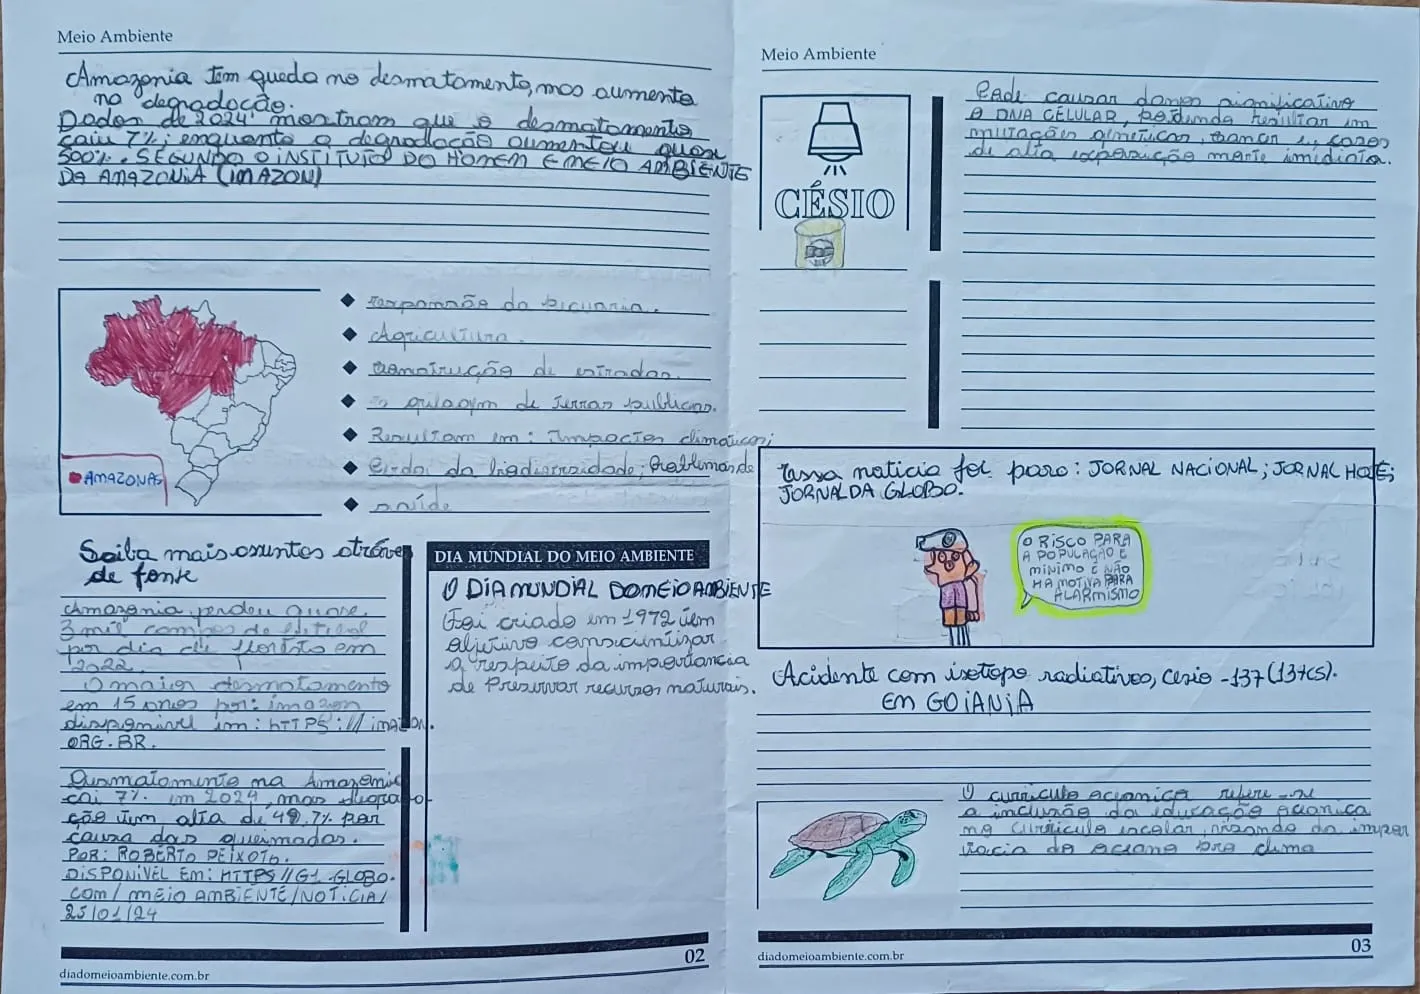 Meio Ambiente
Amazonia tem queda no desmatamento, mas aumenta
na degradação.
Dados de 2024 mostram que o desmatamento
caiu 7%; enquanto a degradação aumentou quase
500%. SEGUNDO O INSTITUTO DO HOMEM E MEIO AMBIENTE
DA AMAZONIA (IMAZON)
expansão da picuaria.
Agricultura.
construção de estradas.
a grilagem de terras publicas.
Resultam em: impactos climaticos;
Perda da biodiversidade; Problemas de
saúde
AMAZONAS
Saiba mais assuntos atráves
de fonte
Amazonia perdeu quase
3 mil campos de futebol
por dia de floresta em
2022.
O maior desmatamento
em 15 anos por: imazon
disponivel em: hTTPS://imazon.
ORG.BR.
Desmatamento na Amazonia
cai 7% em 2024, mas degrada-
ção tem alta de 497% por
causa das queimadas.
POR: ROBERTO PEIXOTO.
DISPONIVEL EM: HTTPS//G1.GLOBO.
COM/MEIO AMBIENTE/NOTICIA/
25/01/24
DIA MUNDIAL DO MEIO AMBIENTE
O DIA MUNDIAL DO MEIO AMBIENTE
Foi criado em 1972 tem
objetivo conscientizar
a respeito da importancia
de Preservar recursos naturais.
02
diadomeioambiente.com.br
Meio Ambiente
CÉSIO
Pode causar danos significativo
A DNA CÉLULAR, podendo resultar em
mutações genéticas, cancer e, casos
de alta exposição morte imediata.
essa noticia foi para: JORNAL NACIONAL; JORNAL HOJE;
JORNAL DA GLOBO.
O RISCO PARA
A POPULAÇÃO É
MINIMO E NÃO
HA MOTIVA PARA
ALARMISMO
Acidente com isotopo radiativo, Cesio -137 (137CS).
EM GOIANIA
O curriculo oceanico refere-se
a inclusão da educação oceanica
no curriculo escolar, visando da impor
tacia do oceano pro clima
03
diadomeioambiente.com.br